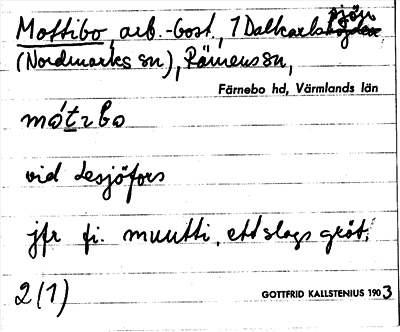 Mottibo, arb.-bost., 1 Dalkarlssjön
(Nordmarks sn), Rämens sn,
Färnebo hd, Värmlands län
mótɪbo
vid Lesjöfors
jfr fi. muutti, ett slags gröt.
2(1)
GOTTFRID KALLSTENIUS 1903